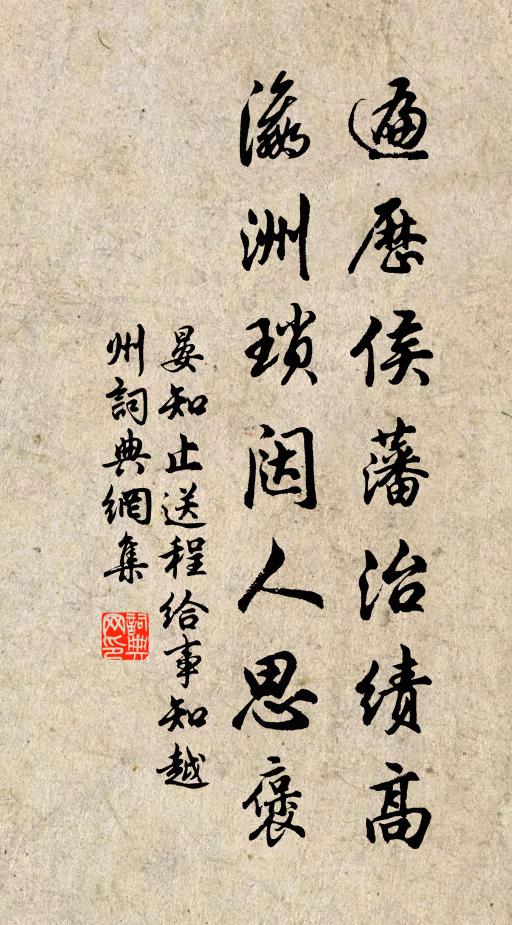 遍歷侯藩治績高
瀛洲瑣闥人思褒
晏知止送程給事知越
州詞典網集
詞典网印